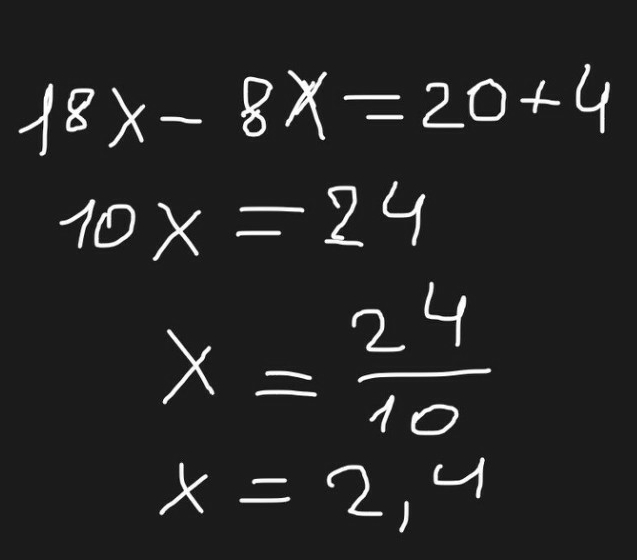 18x - 8x = 20 + 4
10x = 24
x = 24/10
x = 2,4